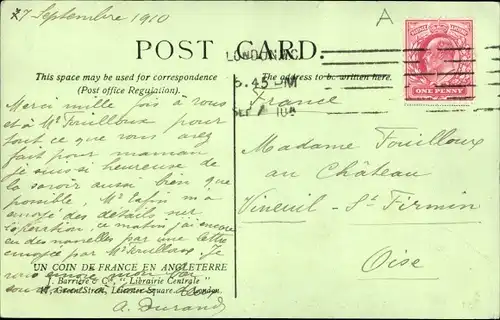 7 Septembre 1910
A
POST CARD.
LONDON. W.C
5.45 PM
SEP 7 10
ONE PENNY
This space may be used for correspondence
(Post office Regulation).
The address to be written here.
Merci mille fois à vous
et à Mr Fouilloux pour
tout ce que vous avez
fait pour maman
je suis si heureuse de
la savoir aussi bien que
possible, Mr Lafin m'a
envoyé des détails sur
l'opération, ce matin j'ai encore
eu des nouvelles par une lettre
envoyée par Mr Fouilloux. Je
vous
UN COIN DE FRANCE EN ANGLETERRE
J. Barrière & Co, "Librairie Centrale"
Green Street, Leicester Square. London.
A. Durand
France
Madame Fouilloux
au Château
Vineuil - St Firmin
Oise